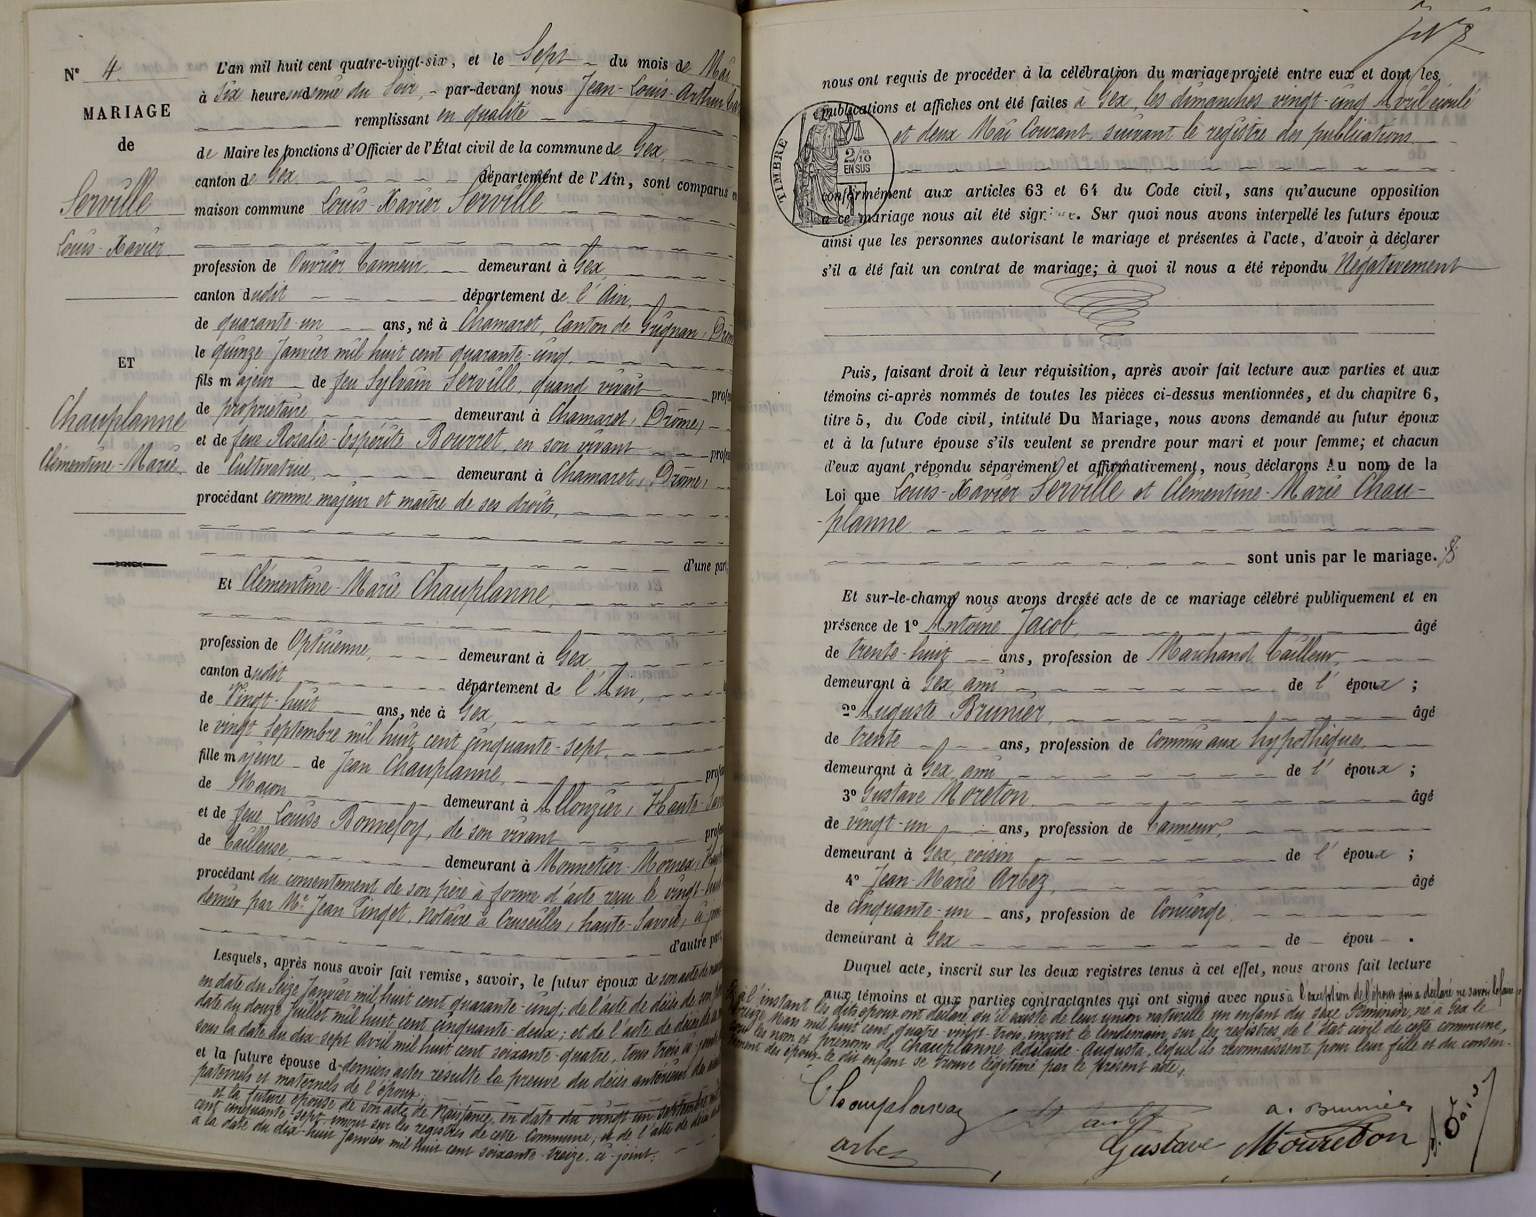 Nº 4.
MARIAGE
de
Serville
Louis-Xavier
ET
Chauplanne
Clémentine-Marie
L'an mil huit cent quatre-vingt-six, et le Sept du mois de Mai
à Six heures du Soir, par-devant nous Jean-Louis-Arthur
remplissant en qualité
de Maire les fonctions d'Officier de l'État civil de la commune de Gex,
canton de Gex département de l'Ain, sont comparus en
maison commune Louis-Xavier Serville
profession de Ouvrier tanneur, demeurant à Gex,
canton dudit département de l'Ain,
de quarante-un ans, né à Chamaret, Canton de Grignan, Drôme
le quinze Janvier mil huit cent quarante-cinq,
fils majeur de feu Sylvain Serville, quand vivait
de propriétaire demeurant à Chamaret, Drôme,
et de feue Rosalie-Espérite Bourret, en son vivant
de Cultivatrice, demeurant à Chamaret, Drôme,
procédant comme majeur et maître de ses droits,
d'une part,
Et Clémentine-Marie Chauplanne,
profession de demeurant à Gex
canton dudit département de l'Ain,
de Vingt-huit ans, née à Gex,
le vingt Septembre mil huit cent cinquante-sept,
fille majeure de Jean Chauplanne,
de Maçon demeurant à Allonzier, Haute-
et de feue Louise Bonnefoy, de son vivant
de tailleuse, demeurant à Monnetier-Mornex,
procédant du consentement de son père à forme d'acte reçu le vingt-huit
dernier par Me Jean Pinget, Notaire à Cruseilles, haute-Savoie,
d'autre part,
Lesquels, après nous avoir fait remise, savoir, le futur époux de son acte de
en date du Seize Janvier mil huit cent quarante-cinq; de l'acte de décès de son
date du douze Juillet mil huit cent cinquante-deux; et de l'acte de décès de
sous la date du dix sept Avril mil huit cent soixante-quatre, tous trois
et la future épouse derniers actes résulte la preuve du décès antérieur
paternels et maternels de l'époux,
et la future épouse de son acte de Naissance, en date du vingt un septembre
cent cinquante-sept, inscrit sur les registres de cette Commune, et de l'acte de décès
à la date du dix-huit Janvier mil huit cent soixante-treize, ci-joint,
nous ont requis de procéder à la célébration du mariage projeté entre eux et dont les
publications et affiches ont été faites à Gex, les dimanches vingt-cinq Avril écoulé
et deux Mai Courant, suivant le registre des publications
TIMBRE
2/10
EN SUS
conformément aux articles 63 et 64 du Code civil, sans qu'aucune opposition
à ce mariage nous ait été signifiée. Sur quoi nous avons interpellé les futurs époux
ainsi que les personnes autorisant le mariage et présentes à l'acte, d'avoir à déclarer
s'il a été fait un contrat de mariage; à quoi il nous a été répondu Négativement
Puis, faisant droit à leur réquisition, après avoir fait lecture aux parties et aux
témoins ci-après nommés de toutes les pièces ci-dessus mentionnées, et du chapitre 6,
titre 5, du Code civil, intitulé Du Mariage, nous avons demandé au futur époux
et à la future épouse s'ils veulent se prendre pour mari et pour femme; et chacun
d'eux ayant répondu séparément et affirmativement, nous déclarons Au nom de la
Loi que Louis-Xavier Serville et Clémentine-Marie Chau-
-planne
sont unis par le mariage.
Et sur-le-champ nous avons dressé acte de ce mariage célébré publiquement et en
présence de 1º Antoine Jacob, âgé
de trente-huit ans, profession de Marchand tailleur
demeurant à Gex, ami de l'époux;
2º Auguste Brunier, âgé
de trente ans, profession de Commis aux hypothèques
demeurant à Gex, ami de l'époux;
3º Gustave Moreton, âgé
de vingt-un ans, profession de tanneur
demeurant à Gex, voisin de l'époux;
4º Jean-Marie Arbez, âgé
de cinquante-un ans, profession de Concierge
demeurant à Gex de épou.
Duquel acte, inscrit sur les deux registres tenus à cet effet, nous avons fait lecture
aux témoins et aux parties contractantes qui ont signé avec nous à l'exception de l'époux qui a déclaré ne savoir le faire
à l'instant les dits époux ont déclaré qu'il existe de leur union naturelle un enfant du sexe féminin, né à Gex le
treize Mars mil huit cent quatre-vingt-trois, inscrit le lendemain, sur les registres de l'Etat civil de cette commune,
sous les nom et prénoms de Chauplanne Adélaïde-Augusta, lequel ils reconnaissent pour leur fille et du consen-
tement des époux le dit enfant se trouve légitimé par le présent acte,
Chauplanne
a. Brunier
arbez
Gustave Moureton